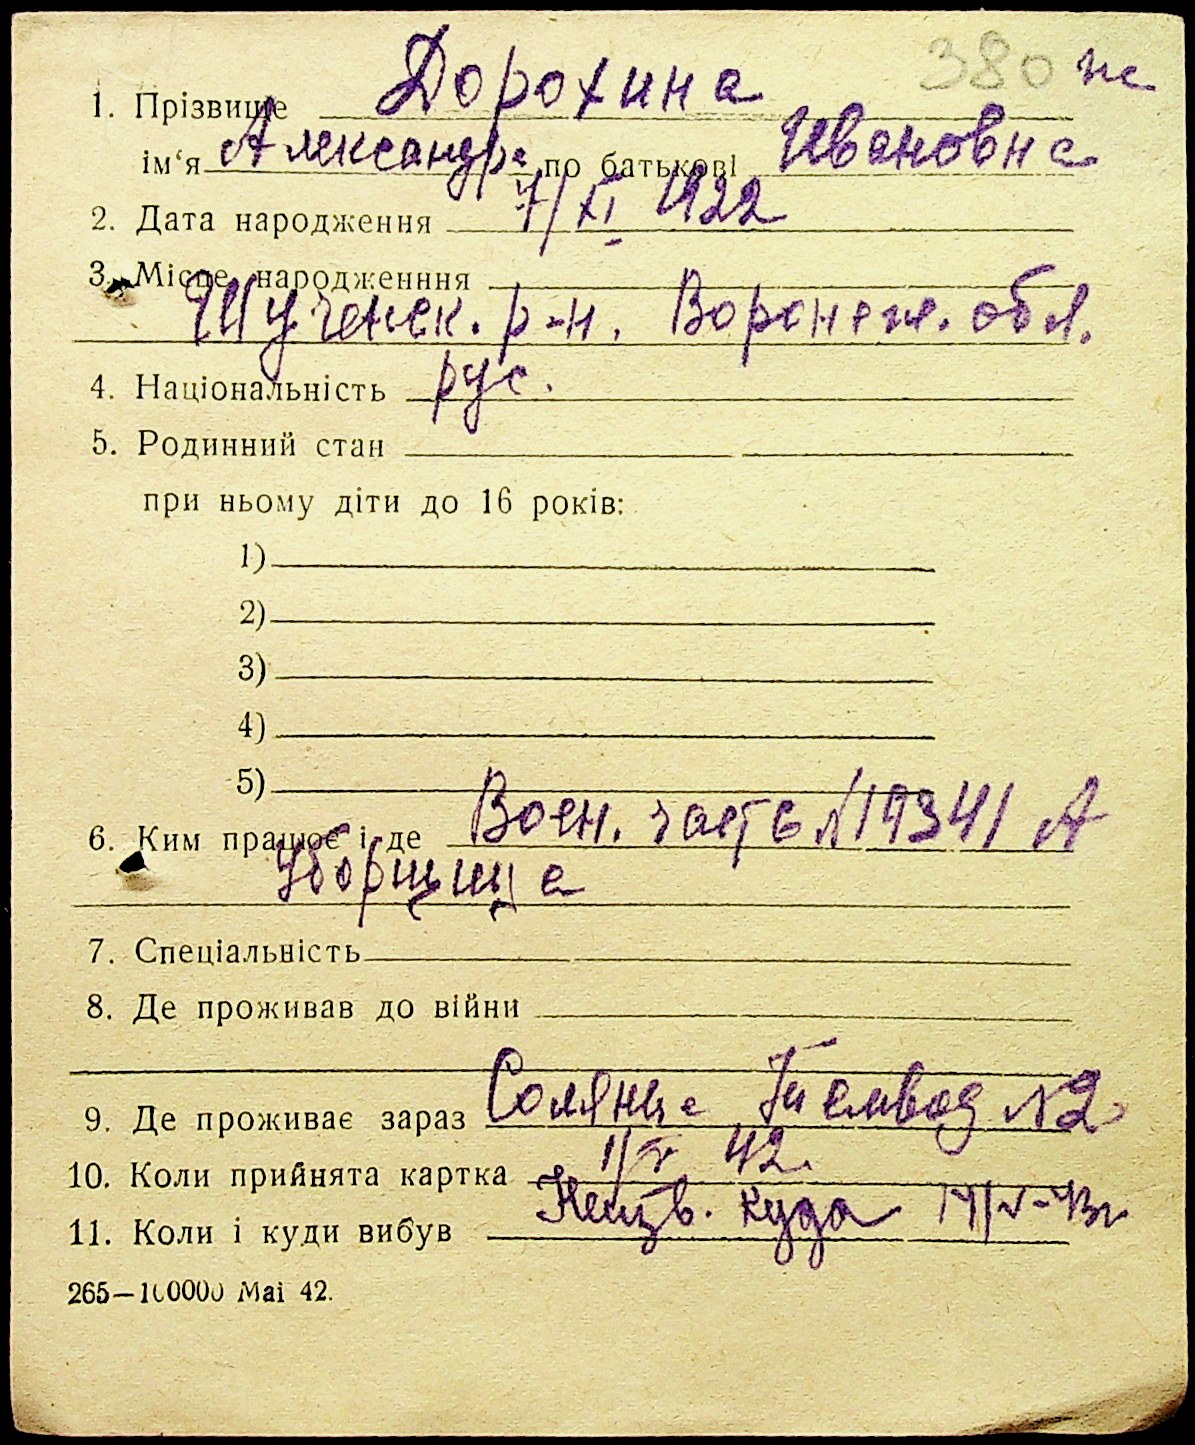 380 ж
1. Прізвище Дорохина
ім‘я Александра по батькові Ивановна
2. Дата народження 7/XI 1922
3. Місце народженння
Щученск. р-н. Воронеж. обл.
4. Національність рус.
5. Родинний стан
при ньому діти до 16 років:
1)
2)
3)
4)
5)
6. Ким працює і де Воен. часть №19341 А
Уборщица
7. Спеціальність
8. Де проживав до війни
9. Де проживає зараз №2
10. Коли прийнята картка 1/V 42.
11. Коли і куди вибув Неизв. куда
265—100000 Маі 42.